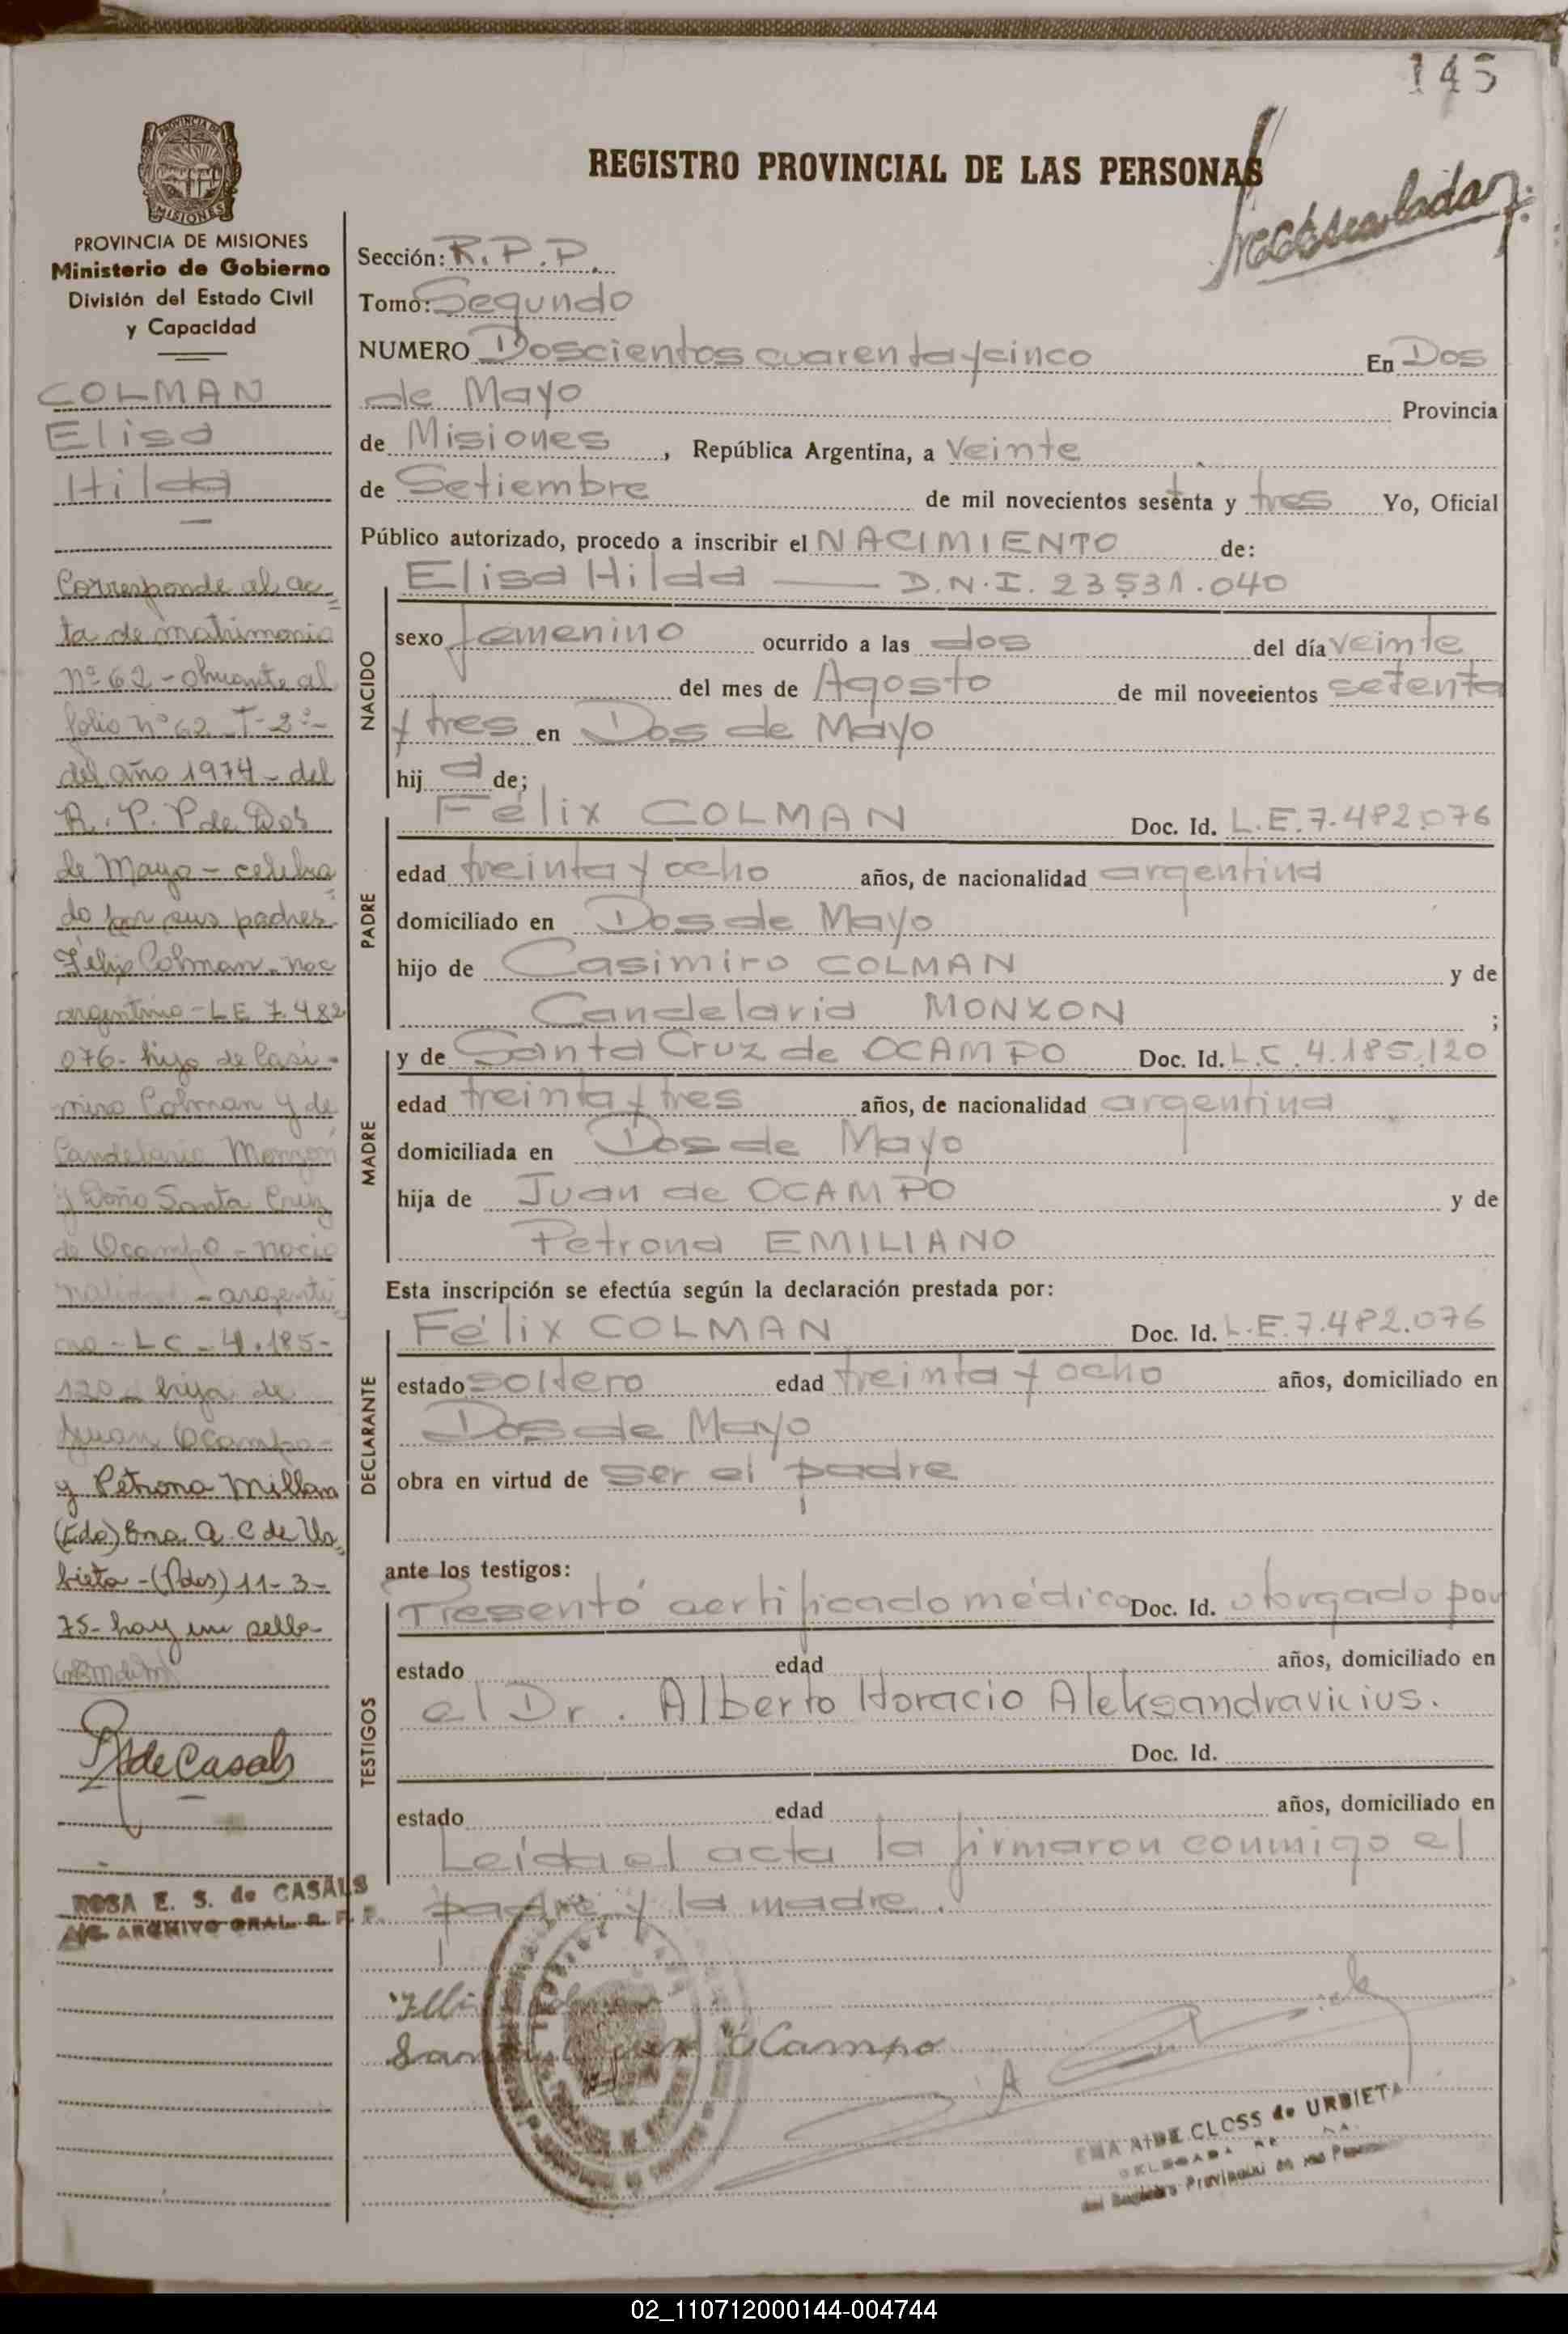 145
REGISTRO PROVINCIAL DE LAS PERSONAS
PROVINCIA DE MISIONES
MISIONES
PROVINCIA DE MISIONES
Ministerio de Gobierno
División del Estado Civil
y Capacidad
COLMAN
Elisa
Hilda
Corresponde al ac
ta de matrimonio
nº 62 - obrante al
folio nº 62 - T- 2º-
del año 1974 - del
R. P. P de Dos
de Mayo - celebra
do por sus padres
Félix Colman - nac
argentino - LE 7.482
076 - hijo de Casi-
miro Colman y de
Candelaria Monzon
y Doña Santa Cruz
de Ocampo - nacio
nalidad - argenti
na - LC - 4.185-
120 - hija de
Juan Ocampo -
y Petrona Millan
(Fdo) Ema A. C de Ur
bieta - (Pdas) 11-3-
75 - hay un sello
de Casals
ROSA E. S. de CASALS
A/C ARCHIVO GRAL. R. P. P.
Sección: R.P.P.
Tomo: Segundo
NUMERO Doscientos cuarenta y cinco En Dos
de Mayo Provincia
de Misiones, República Argentina, a Veinte
de Setiembre de mil novecientos sesenta y tres Yo, Oficial
Público autorizado, procedo a inscribir el NACIMIENTO de:
NACIDO
Elisa Hilda — D.N.I. 23531.040
sexo femenino ocurrido a las dos del día veinte
del mes de Agosto de mil novecientos setenta
y tres en Dos de Mayo
hij a de;
PADRE
Félix COLMAN Doc. Id. L.E.7.482.076
edad treinta y ocho años, de nacionalidad argentina
domiciliado en Dos de Mayo
hijo de Casimiro COLMAN y de
Candelaria MONZON ;
MADRE
y de Santa Cruz de OCAMPO Doc. Id. L.C.4.185.120
edad treinta y tres años, de nacionalidad argentina
domiciliada en Dos de Mayo
hija de Juan de OCAMPO y de
Petrona EMILIANO
Esta inscripción se efectúa según la declaración prestada por:
DECLARANTE
Félix COLMAN Doc. Id. L.E.7.482.076
estado soltero edad treinta y ocho años, domiciliado en
Dos de Mayo
obra en virtud de ser el padre
ante los testigos:
TESTIGOS
Presentó certificado médico Doc. Id. otorgado por
estado edad años, domiciliado en
el Dr. Alberto Horacio Aleksandravicius.
Doc. Id.
estado edad años, domiciliado en
Leída el acta la firmaron conmigo el
padre y la madre.
Ocampo
EMA AIDE CLOSS de URBIETA
DELEGADA
del Registro Provincial de las Personas
02_110712000144-004744